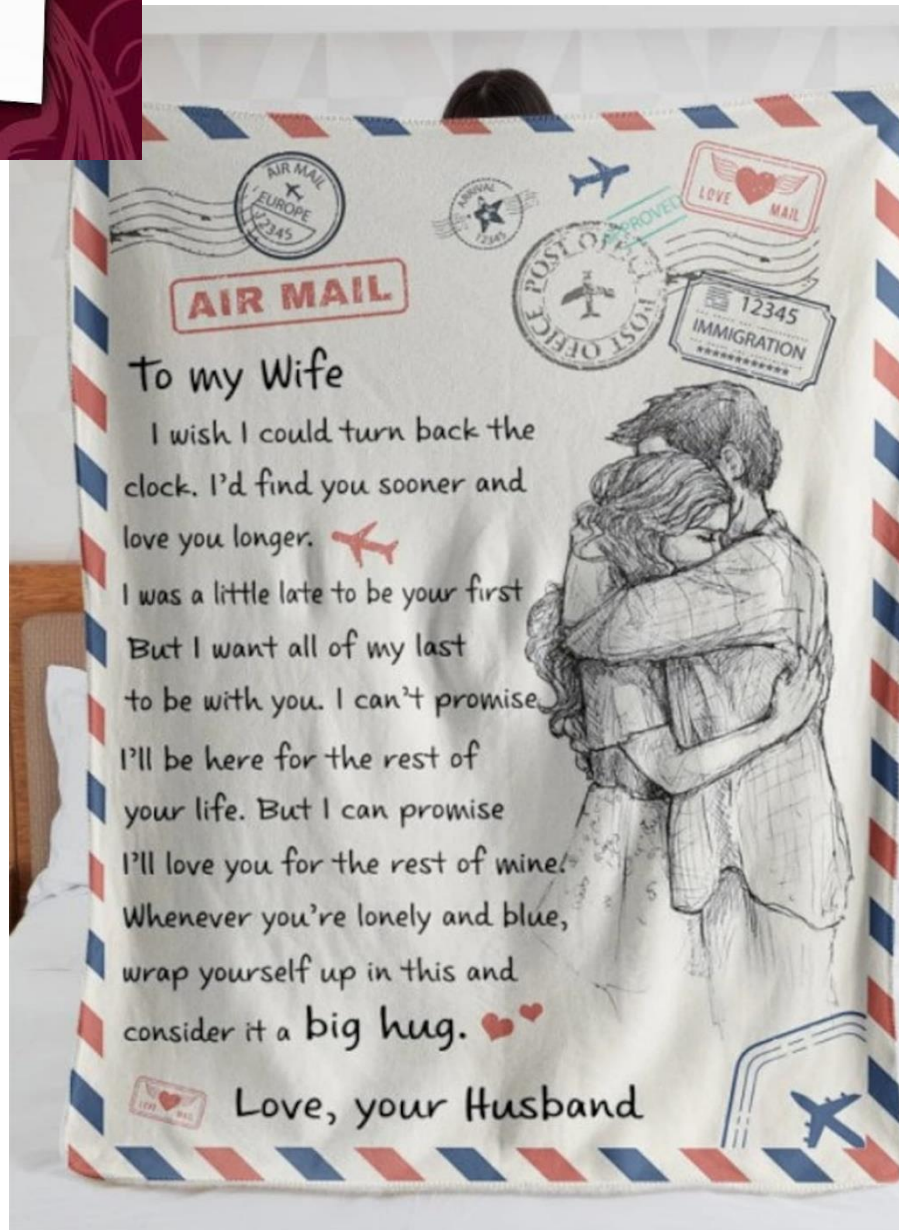 AIR MAIL
EUROPE
12345
ARRIVAL
12345
APPROVED
LOVE
MAIL
POST OFFICE
POST OFFICE
12345
IMMIGRATION
AIR MAIL
To my Wife
I wish I could turn back the
clock. I'd find you sooner and
love you longer.
I was a little late to be your first
But I want all of my last
to be with you. I can't promise
I'll be here for the rest of
your life. But I can promise
I'll love you for the rest of mine!
Whenever you're lonely and blue,
wrap yourself up in this and
consider it a big hug.
LOVE MAIL
Love, your Husband